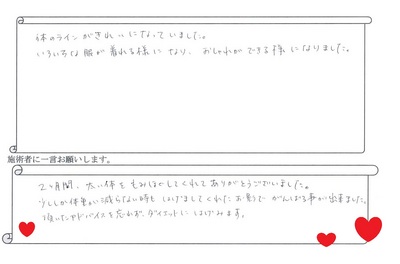 体のラインがきれいになっていました。
いろいろな服が着れる様になり、おしゃれができる様になりました。
施術者に一言お願いします。
2ヶ月間、太い体をもみほぐしてくれてありがとうございました。
少ししか体重が減らない時も はげましてくれたお陰で がんばる事が出来ました。
頂いたアドバイスを忘れず、ダイエットに はげみます。